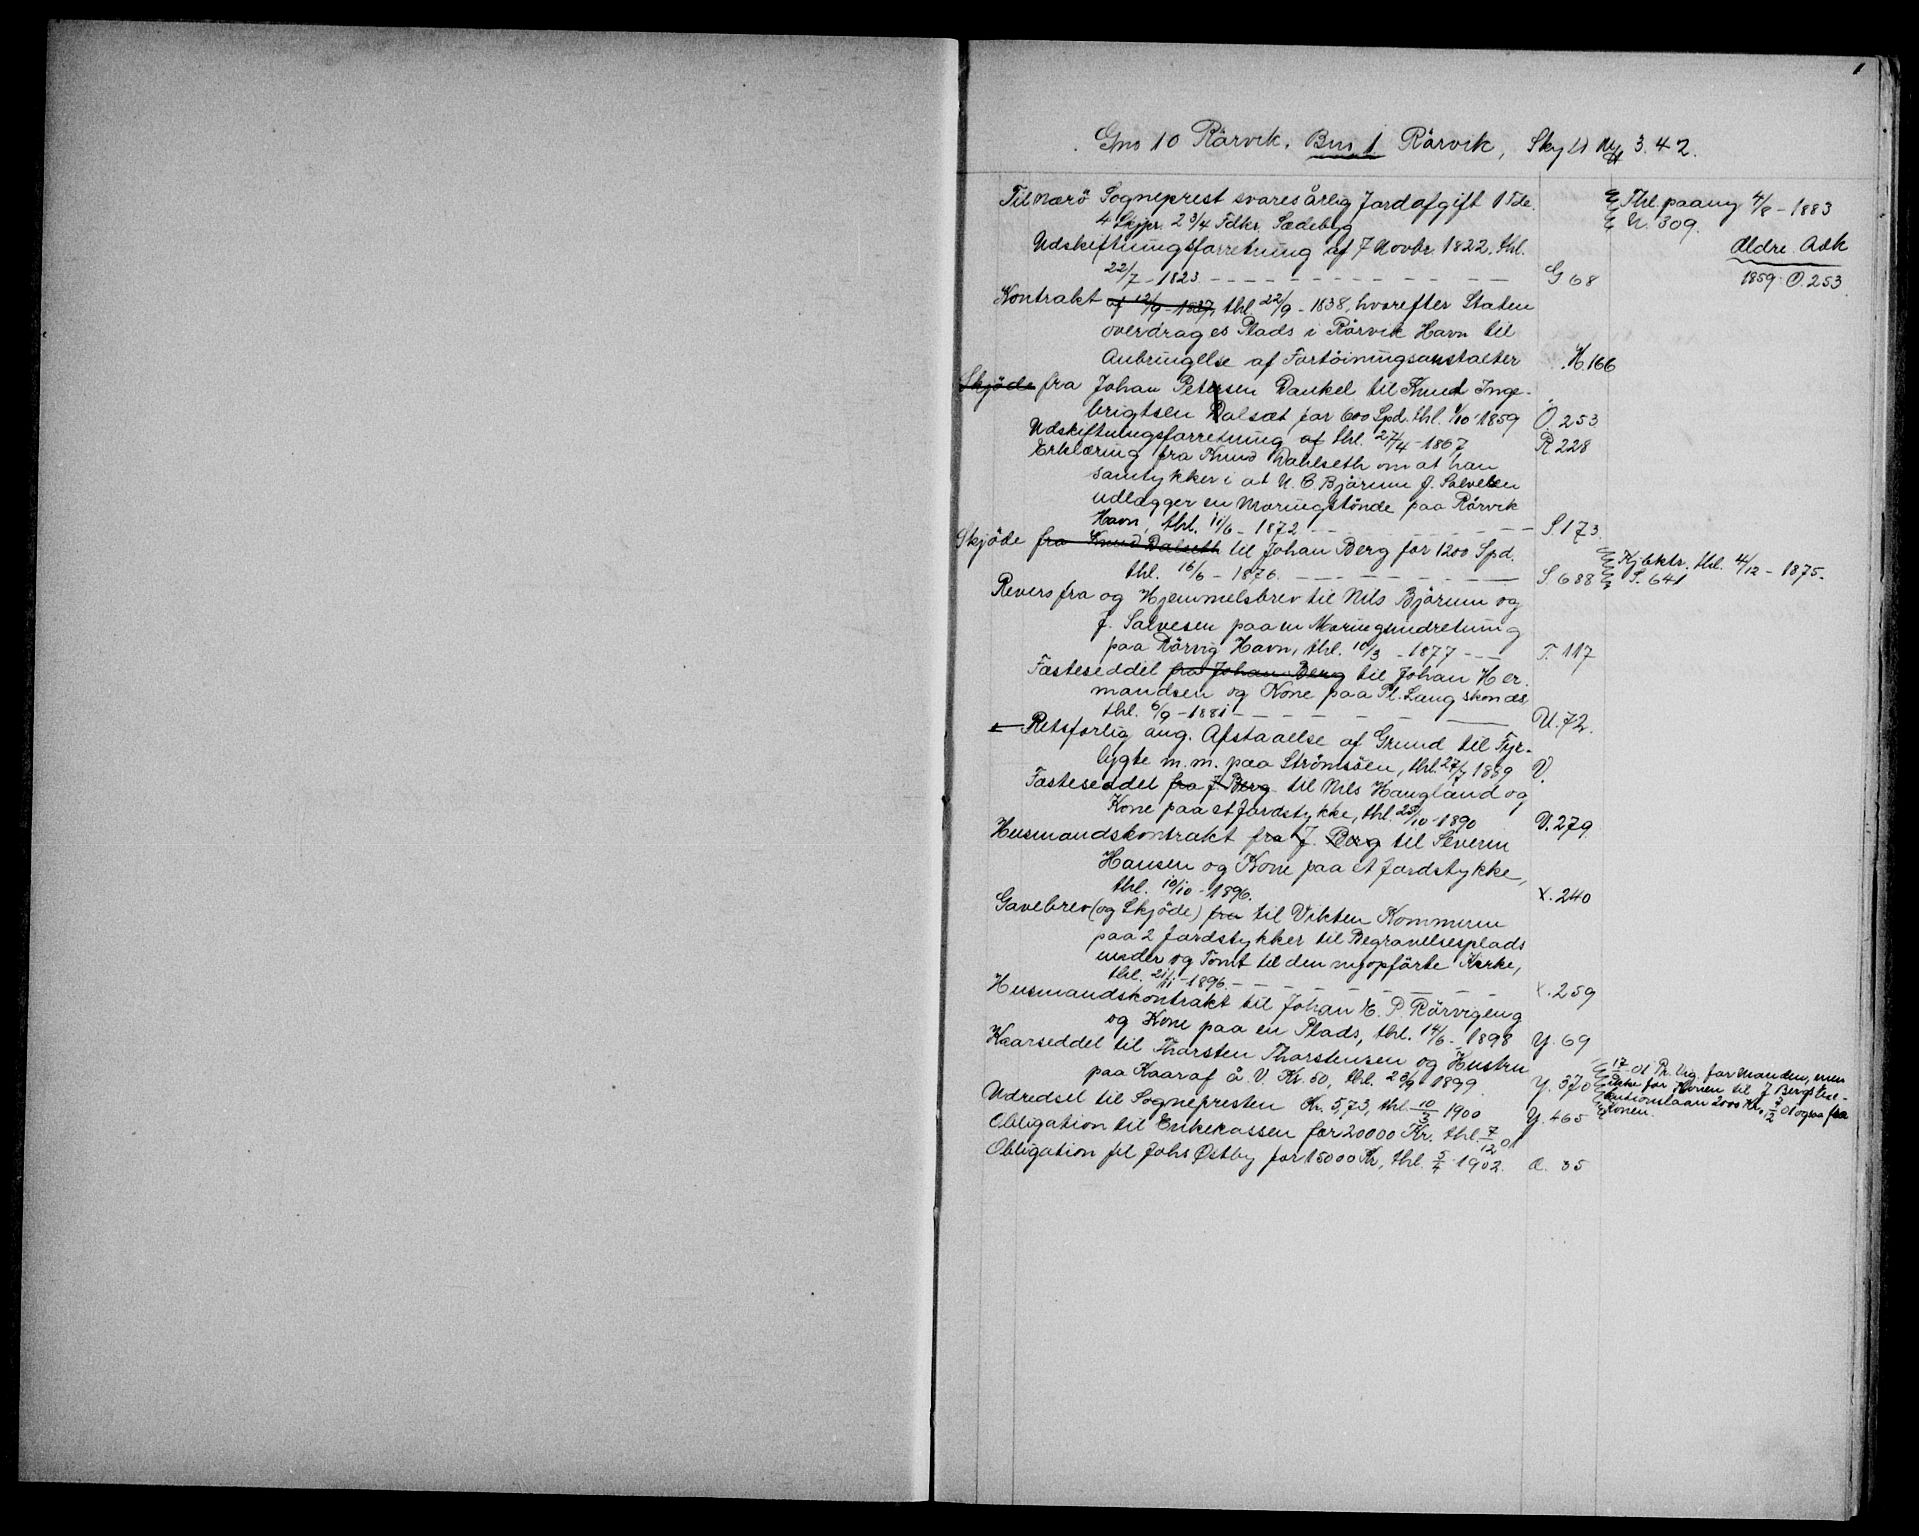 1
Gno 10 Rörvik. Bno 1 Rörvik, Skyld My 3.42.
Til Nærö Sogneprest svares årlig Jordafgift 1 Tde.
4 Skjpr. 2 3/4 Fdkr. Sædebyg
Thl. paany 4/8 - 1883
N. 309.
Udskiftningsforretning af 7 Novbr. 1822. thl.
22/7 - 1823 - - - - - - - - - G 68
Ældre Adk
1859. O. 253
Kontrakt af 12/9 - 1837, thl. 22/9 - 1838, hvorefter Staten
overdrages Plads i Rörvik Havn til
Anbringelse af Fortöiningsanstalter H. 166
Skjöde fra Johan Petersen Dankel til Knud Inge-
brigtsen Dalsæt for 600 Spd. thl. 1/10 - 1859 O. 253
Udskiftningsforretning af thl. 27/4 - 1867 R 228
Erklæring fra Knud Dahlseth om at han
samtykker i at N. C. Björum & J. Salvesen
udlægger en Moringstönde paa Rörvik
Havn, thl. 11/6 - 1872 - - - - - S. 173.
Skjöde fra Knud Dalseth til Johan Berg for 1200 Spd.
thl. 16/6 - 1876. - - - - - S 688
Kjbktr. thl. 4/12 - 1875.
S. 641
Revers fra og Hjemmelsbrev til Nils Björum og
J. Salvesen paa en Moringsindretning
paa Rörvig Havn, thl. 10/3 - 1877 - - - T. 117
Fæsteseddel fra Johan Berg til Johan Her-
mandsen og Kone paa Pl. Langskonæs
thl. 6/9 - 1881 - - - - - - U. 72.
Retsforlig ang. Afstaaelse af Grund til Fyr-
lygte m.m. paa Strömsöen, thl. 27/7 1889 V.
Fæsteseddel fra J. Berg til Nils Haugland og
Kone paa et Jordstykke, thl. 28/10 - 1890 V. 279
Husmandskontrakt fra J. Berg til Severin
Hansen og Kone paa et Jordstykke,
thl. 10/10 - 1896. X. 240
Gavebrev (og Skjöde) fra til Vikten Kommune
paa 2 Jordstykker til Begravelsesplads
under og Tomt til den nyopförte Kirke,
thl. 21/11 - 1896. - - - - - - X. 259
Husmandskontrakt til Johan H. P. Rörvigeng
og Kone paa en Plads, thl. 14/6 - 1898 Y. 69
Kaarseddel til Thorsten Thorstensen og Hustru
paa Kaar af å. V. Kr. 50, thl. 23/9 - 1899 Y. 370
17/ - 01 Pr. Vig. for Manden, men
ikke for Konen til J Bergs Exe-
kutionslaan 2000 Kr, 7/12 01 ogsaa fra
Konen.
Udredsel til Sognepresten Kr. 5,73, thl. 10/3 1900 Y. 465
Obligation til Enkekassen for 20000 Kr. thl. 7/12 01
Obligation til Johs Østby for 15000 Kr, thl. 5/4 1902. Æ. 35